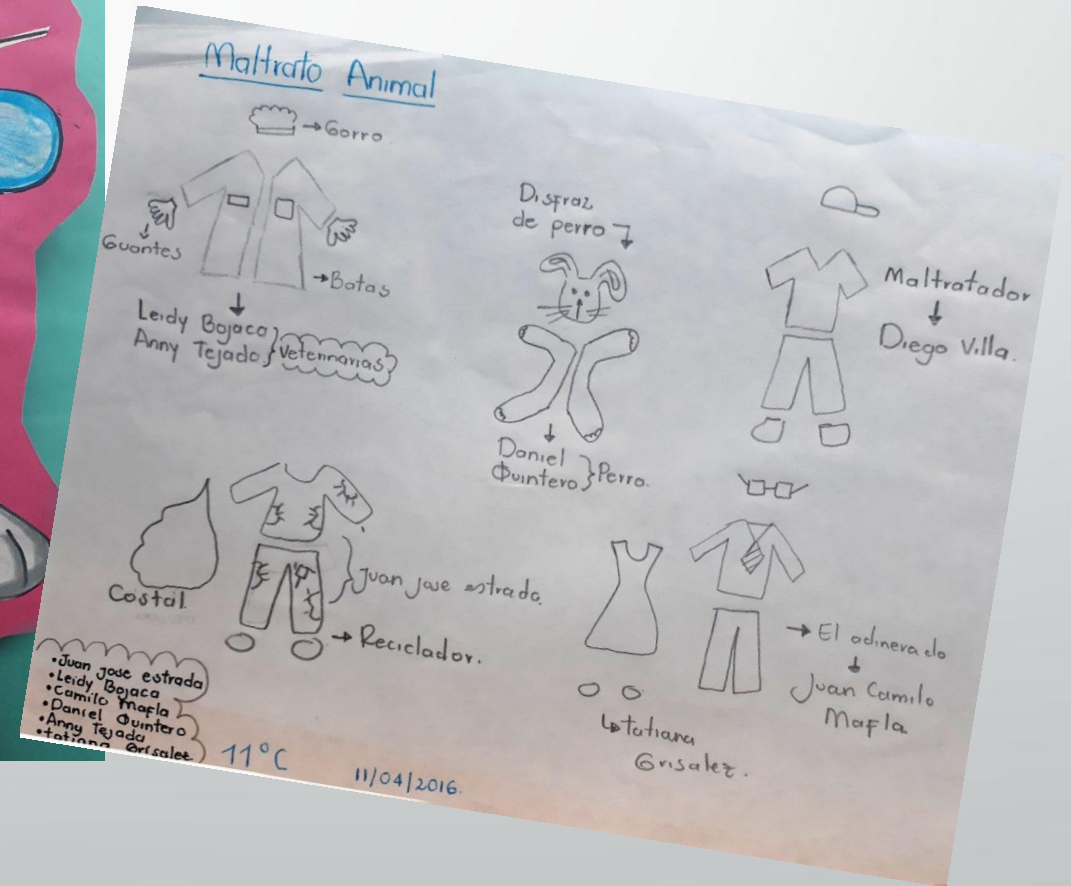 Maltrato Animal
→Gorro
Guantes
→Batas
Leidy Bojaca
Anny Tejada
Veterinarias
Disfraz
de perro
Daniel
Quintero
Perro.
Maltratador
Diego Villa.
Costal
Juan jose estrada.
→Reciclador.
→El adinerado
Juan Camilo
Mafla.
tatiana
Grisalez.
•Juan jose estrada
•Leidy Bojaca
•Camilo Mafla
•Daniel Quintero
•Anny Tejada
•tatiana Grisalez
11°C
11/04/2016.